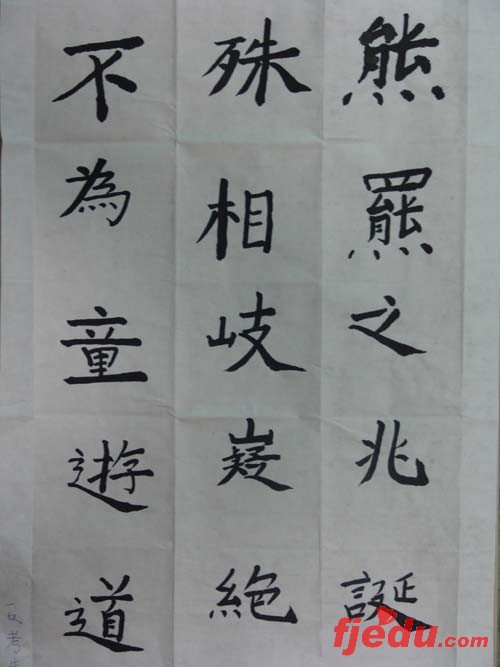 熊羆之兆誕
殊相岐嶷絶
不為童遊道
fjedu.com